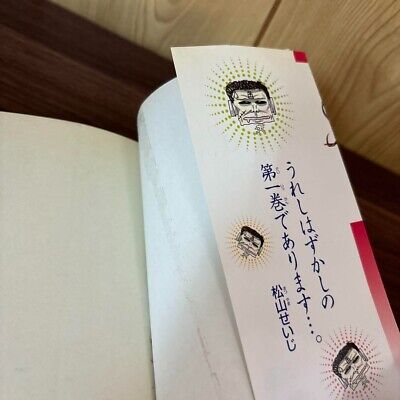 うれしはずかしの
第一巻であります…。
松山せいじ